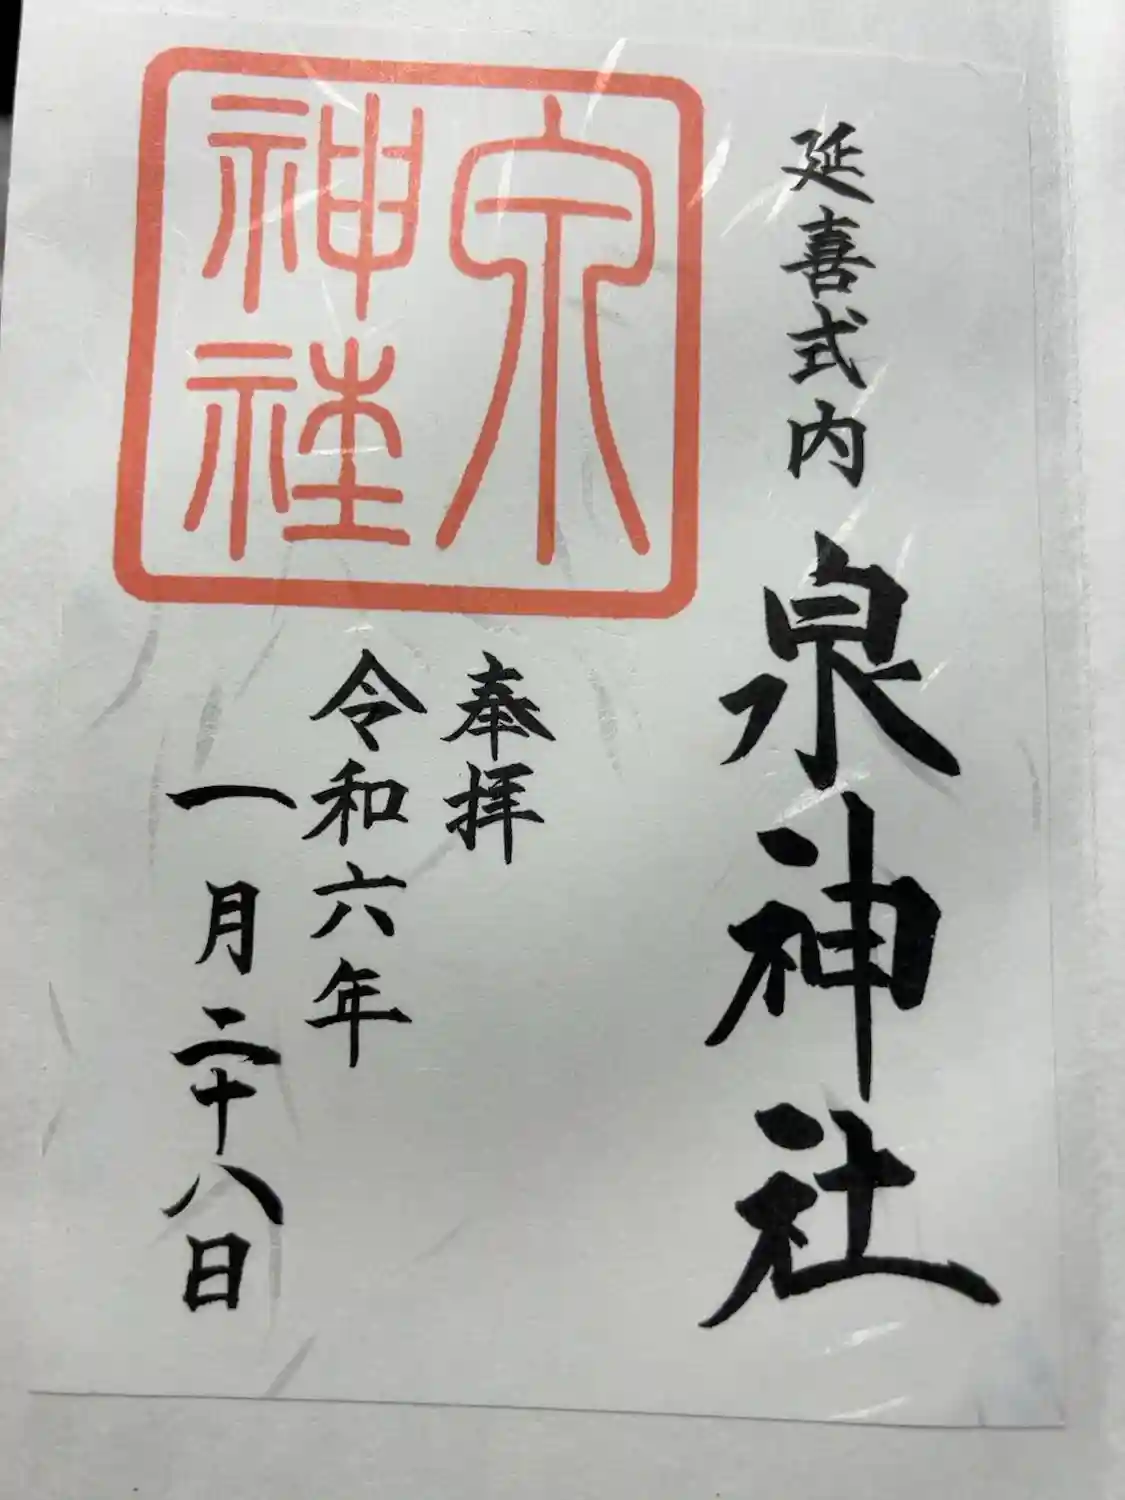 延喜式内 泉神社
泉
神社
奉拝
令和六年
一月二十八日